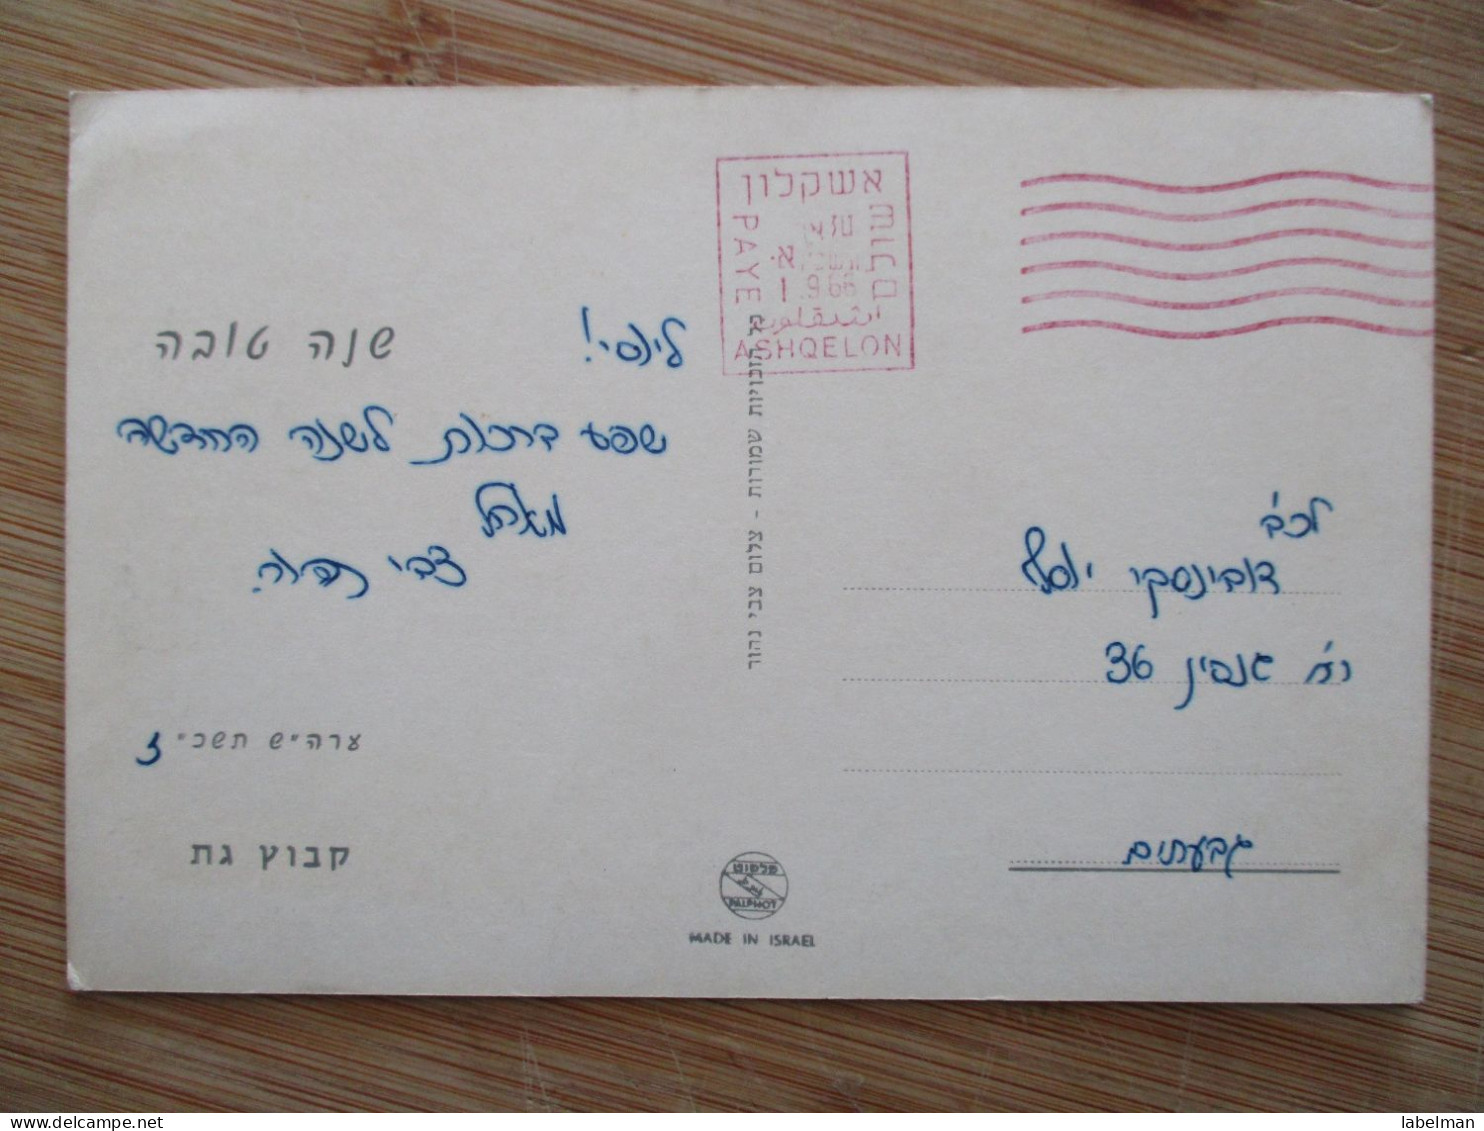 שנה טובה
לינסי!
שפע ברכות לשנה החדשה
מאחל
צבי
ערה״ש תשכ״ז
קבוץ גת
אשקלון
שולם
PAYE
1.9.66
ASHQELON
כל הזכויות שמורות - צלום צבי נהור
פלפוט
PALPHOT
MADE IN ISRAEL
לכב'
דובינסקי יוסף
רח' 36
גבעתיים
labelman